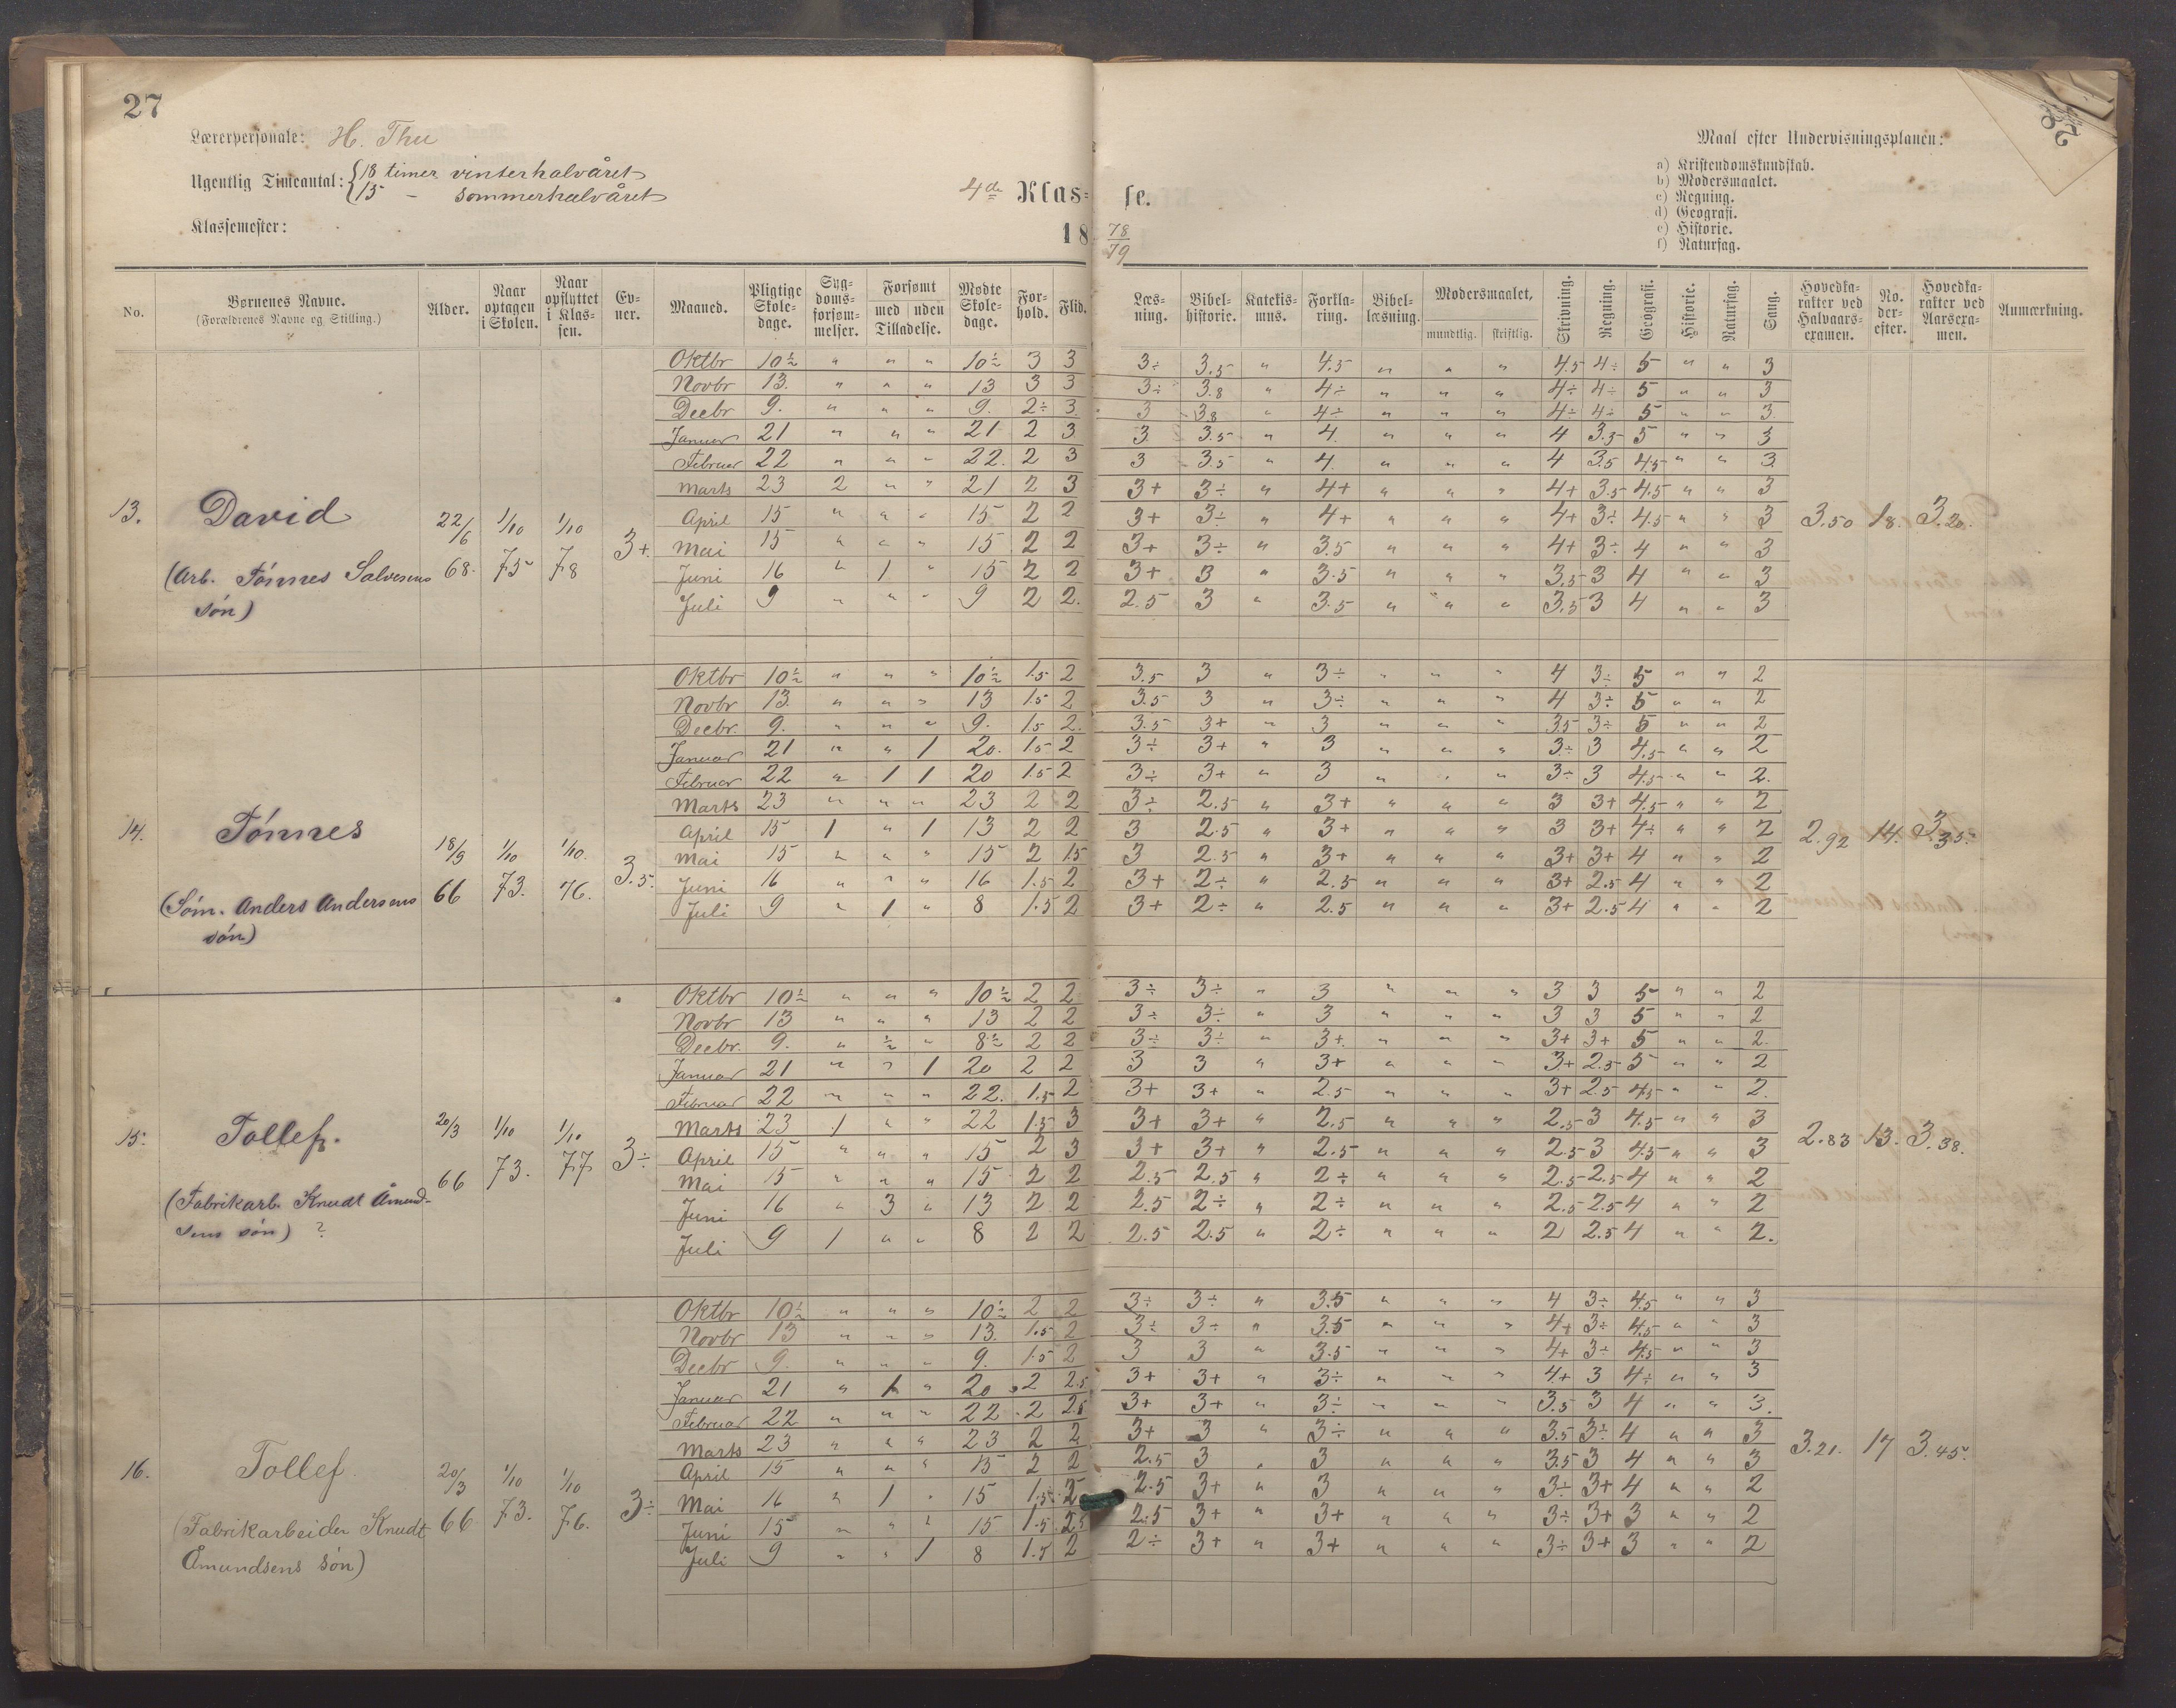 27
28
Lærerpersonale: H. Thu
Ugentlig Timeantal: { 18 timer vinterhalvåret
15 – sommerhalvåret
Klassemester:
4de Klas- se.
18 78/79
Maal efter Undervisningsplanen:
a) Kristendomskundskab.
b) Modersmaalet.
c) Regning.
d) Geografi.
e) Historie.
f) Naturfag.
No. | Børnenes Navne. (Forældrenes Navne og Stilling.) | Alder. | Naar optagen i Skolen. | Naar opflyttet i Klassen. | Evner. | Maaned. | Pligtige Skoledage. | Sygdomsforsømmelser. | Forsømt med uden Tilladelse. | Mødte Skoledage. | Forhold. | Flid. | Læsning. | Bibelhistorie. | Katekismus. | Forklaring. | Bibellæsning. | Modersmaalet, mundtlig. skriftlig. | Skrivning. | Regning. | Geografi. | Historie. | Naturfag. | Sang. | Hovedkarakter ved Halvaarsexamen. | No. derefter. | Hovedkarakter ved Aarsexamen. | Anmærkning.
13. David (Arb. Tönnes Salvesens sön) 22/6 68. 1/10 75 1/10 78 3+ 3.50 18. 3.20.
Oktbr 10½ " " " 10½ 3 3 3÷ 3.5 " 4.5 " " " 4.5 4÷ 5 " " 3
Novbr 13. " " " 13 3 3 3÷ 3.8 " 4÷ " " " 4÷ 4÷ 5 " " 3
Decbr 9. " " " 9. 2÷ 3 3 3.8 " 4÷ " " " 4÷ 4÷ 5 " " 3.
Januar 21 " " " 21 2 3 3 3.5 " 4. " " " 4 3.5 5 " " 3
Februar 22 " " " 22. 2 3 3 3.5 " 4. " " " 4 3.5 4.5 " " 3.
Marts 23 2 " " 21 2 3 3+ 3÷ " 4+ " " " 4+ 3.5 4.5 " " 3
April 15 " " " 15 2 2 3+ 3÷ " 4+ " " " 4+ 3÷ 4.5 " " 3
Mai 15 " " " 15 2 2 3+ 3÷ " 3.5 " " " 4+ 3÷ 4 " " 3
Juni 16 " 1 " 15 2 2 3+ 3 " 3.5 " " " 3.5 3 4 " " 3
Juli 9 " " " 9 2 2. 2.5 3 " 3.5 " " " 3.5 3 4 " " 3
14. Tönnes (Söm. Anders Andersens sön) 18/9 66 1/10 73. 1/10. 76. 3.5. 2.92 14. 3.35.
Oktbr 10½ " " " 10½ 1.5 2 3.5 3 " 3÷ " " " 4 3÷ 5 " " 2
Novbr 13. " " " 13 1.5 2 3.5 3 " 3÷ " " " 4 3÷ 5 " " 2
Decbr. 9. " " " 9. 1.5 2. 3.5 3+ " 3 " " " 3.5 3÷ 5 " " 2
Januar 21 " " 1 20. 1.5 2 3÷ 3+ " 3 " " " 3÷ 3 4.5 " " 2
Februar 22 " 1 1 20 1.5 2 3÷ 3+ " 3 " " " 3÷ 3 4.5 " " 2.
Marts 23 " " " 23 2 2 3÷ 2.5 " 3+ " " " 3 3+ 4.5 " " 2
April 15 1 " 1 13 2 2 3 2.5 " 3+ " " " 3 3+ 4÷ " " 2
Mai 15 " " " 15 2 1.5 3 2.5 " 3+ " " " 3+ 3+ 4 " " 2
Juni 16 " " " 16 1.5 2 3+ 2÷ " 2.5 " " " 3+ 2.5 4 " " 2
Juli 9 " 1 " 8 1.5 2 3+ 2÷ " 2.5 " " " 3+ 2.5 4 " " 2
15. Tollef. (Fabrikarb. Knudt Åmundsens sön) ? 20/3 66 1/10 73. 1/10 77 3÷ 2.83 13. 3.38.
Oktbr 10½ " " " 10½ 2 2 3÷ 3÷ " 3 " " " 3 3 5 " " 2
Novbr 13 " " " 13 2 2 3÷ 3÷ " 3 " " " 3 3 5 " " 2
Decbr. 9. " ½ " 8½ 2 2 3÷ 3÷ " 3+ " " " 3+ 3+ 5 " " 2.
Januar 21 " " 1 20 2 2 3 3 " 3+ " " " 3+ 2.5 5 " " 2
Februar 22 " " " 22. 1.5 2 3+ 3+ " 2.5 " " " 3+ 2.5 4.5 " " 2.
Marts 23 1 " " 22 1.5 3 3+ 3+ " 2.5 " " " 2.5 3 4.5 " " 3
April 15 " " " 15 2 3 3+ 3+ " 2.5 " " " 2.5 3 4.5 " " 3
Mai 15 " " " 15 2 2 2.5 2.5 " 2÷ " " " 2.5 2.5 4 " " 2
Juni 16 " 3 " 13 2 2 2.5 2÷ " 2÷ " " " 2.5 2.5 4 " " 2
Juli 9 1 " " 8 2 2 2.5 2.5 " 2÷ " " " 2 2.5 4 " " 2.
16. Tollef. (Fabrikarbeider Knudt Åmundsens sön) 20/3 66 1/10 73. 1/10 76. 3÷ 3.21. 17 3.45.
Oktbr 10½ " " " 10½ 2 2 3÷ 3÷ " 3.5 " " " 4 3÷ 4.5 " " 3
Novbr 13 " " " 13. 1.5 2 3÷ 3÷ " 3.5 " " " 4+ 3÷ 4.5 " " 3
Decbr 9. " " " 9. 1.5 2 3 3 " 3.5 " " " 4+ 3÷ 4.5 " " 3
Januar 21 " 1 " 20 2 2.5 3+ 3+ " 3÷ " " " 4+ 3 4÷ " " 3
Februar 22 " " " 22 2 2.5 3+ 3+ " 3÷ " " " 3.5 3 4 " " 3.
Marts 23 " " " 23 2 2 3+ 3 " 3÷ " " " 3.5 3÷ 4 " " 3
April 15 " " " 15 2 2 2.5 3 " 3 " " " 3.5 3 4 " " 3
Mai 16 " 1 " 15 1.5 2 2.5 3+ " 3 " " " 3÷ 3+ 4 " " 2
Juni 15 " " " 15 1.5 2.5 2.5 3+ " 3+ " " " 3÷ 3+ 3 " " 2
Juli 9 " " 1 8 1.5 2 2÷ 3+ " 3+ " " " 3÷ 3+ 3 " " 2